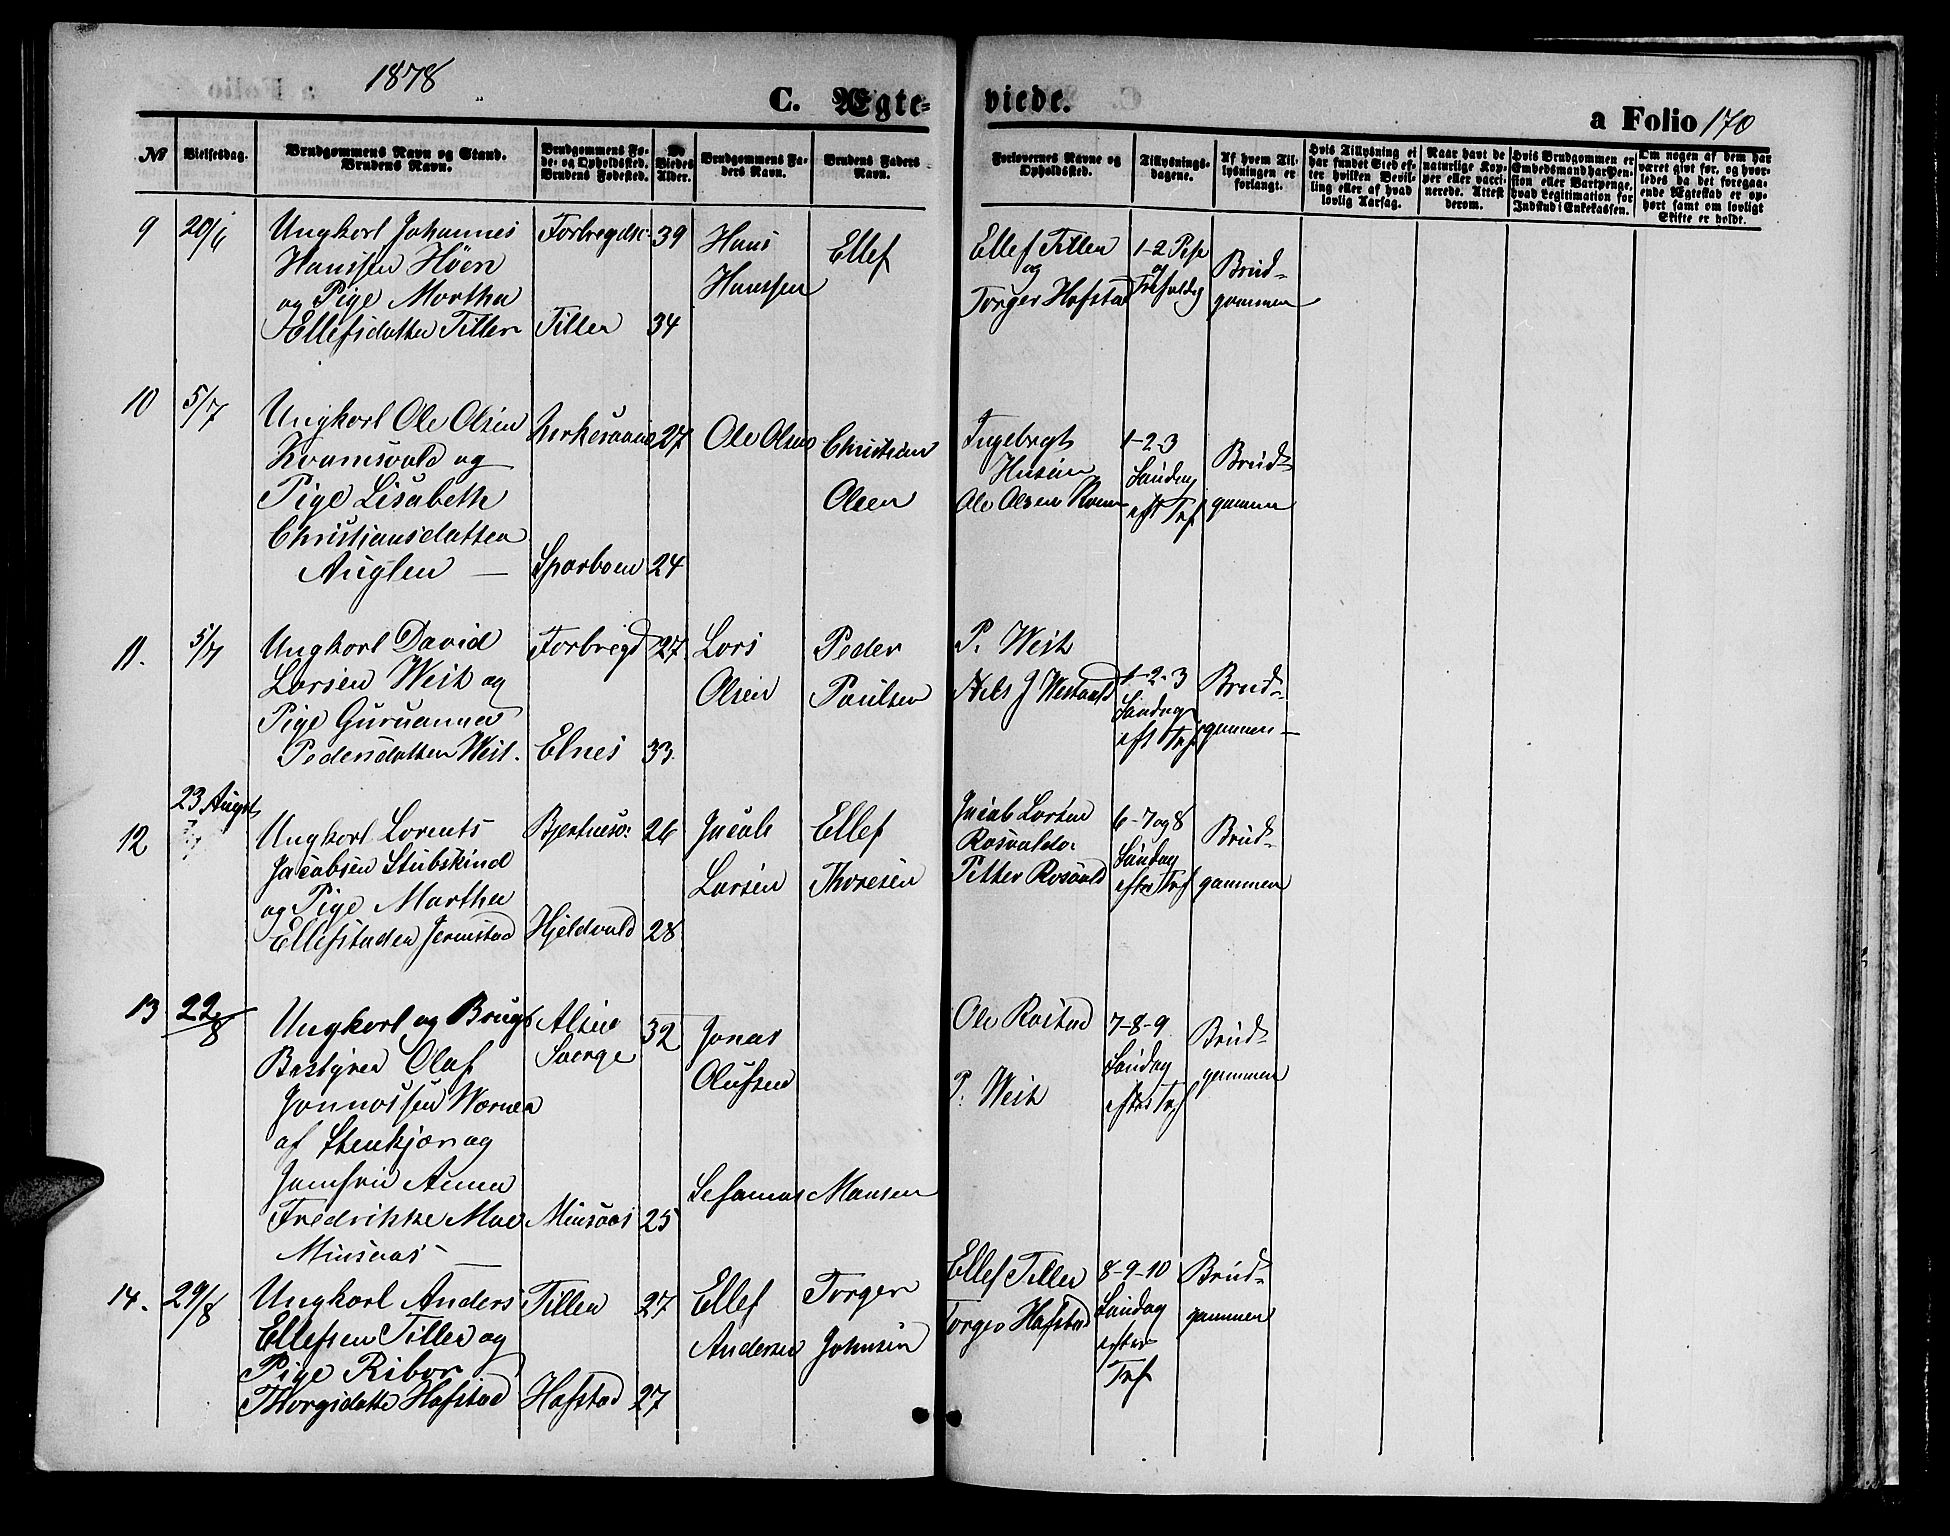 1878
C. Ægte-
viede.
a Folio 170
№
Vielsesdag.
Brudgommens Navn og Stand.
Brudens Navn.
Brudgommens Fø-
de- og Opholdssted.
Brudens Fødested.
De
Viedes
Alder.
Brudgommens Fa-
ders Navn.
Brudens Faders
Navn.
Forlovernes Navne og
Opholdssted.
Tillysnings-
dagene.
Af hvem Til-
lysningen er
forlangt.
Hvis Tillysning ei
har fundet Sted ef-
ter hvilken Bevil-
ling eller af hvad
lovlig Aarsag.
Naar havt de
naturlige Kop-
per eller vacci-
nerede. Attest
derom.
Hvis Brudgommen er
Embedsmand har Pen-
sion eller Vartpenge,
hvad Legitimation for
Indskud i Enkekassen.
Om nogen af dem har
været givt før, og hvor-
ledes da det foregaa-
ende Ægtestad er op-
hørt samt om lovligt
Skifte er holdt.
9
20/6
Ungkarl Johannes
Hanssen Höen
og Pige Martha
Ellefsdatter Tiller
Forbregdsv:
Tiller
39
34
Hans
Hanssen
Ellef
Ellef Tiller
og
Torger Hofstad
1-2 Psp
og
Trefoldig
Brud-
gommen
10
5/7
Ungkarl Ole Olsen
Kvamsvald og
Pige Lisabeth
Christiansdatter
Auglen —
Sparboen
27
24
Ole Olsen
Christian
Olsen
Ingebrgt
Husån
Ole Olsen
1-2-3
Søndag
eft Tref
Brud-
gommen
11.
5/7
Ungkarl David
Larsen Weik og
Pige Guruanna
Pedersdatter Weik.
Forbregd
Elnes
27
33.
Lars
Olsen
Peder
Paulsen
P. Weik
Nils J
1-2-3
Søndag
eft Tref
Brud-
gommen —
12
23 August
Ungkarl Lorents
Jacobsen Stubskind
og Pige Martha
Ellefsdatter Jermstad
Hjeldvald
26
28
Jacob
Larsen
Ellef
Thoresen
Jacob Larsen
Rosvaldv:
Petter Rosvald
6-7 og 8
Søndag
efter Tref
Brud-
gommen
13
22/8
Ungkarl og Brugs
Bestyrer Olaf
Jonnassen Werner
af Stenkjær og
Jomfru Anna
Fredrikke Mae
Minsaas —
Alsen
Sverge
Minsaas
32
25
Jonas
Olufsen
Hansen
Ole Røstad
P. Weik
7-8-9
Søndag
efter Tref
Brud-
gommen
14.
29/8
Ungkarl Anders
Ellefsen Tiller og
Pige Ribor
Thorgsdatte Hofstad
Tiller
Hofstad
27
27
Ellef
Andersen
Torger
Johnsen
Ellef Tiller
Torger Hofstad
8-9-10
Søndag
efter
Tref
Brud-
gommen